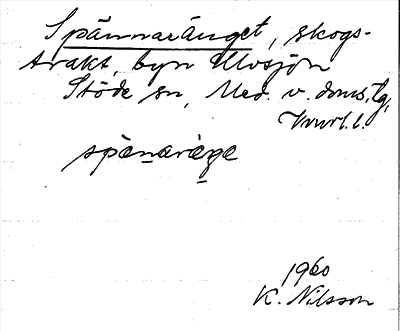 Spännaränget, skogs-
trakt, byn Ulvsjön
Stöde sn, Med. v. doms. tg,
spänaräŋe
1960
K. Nilsson